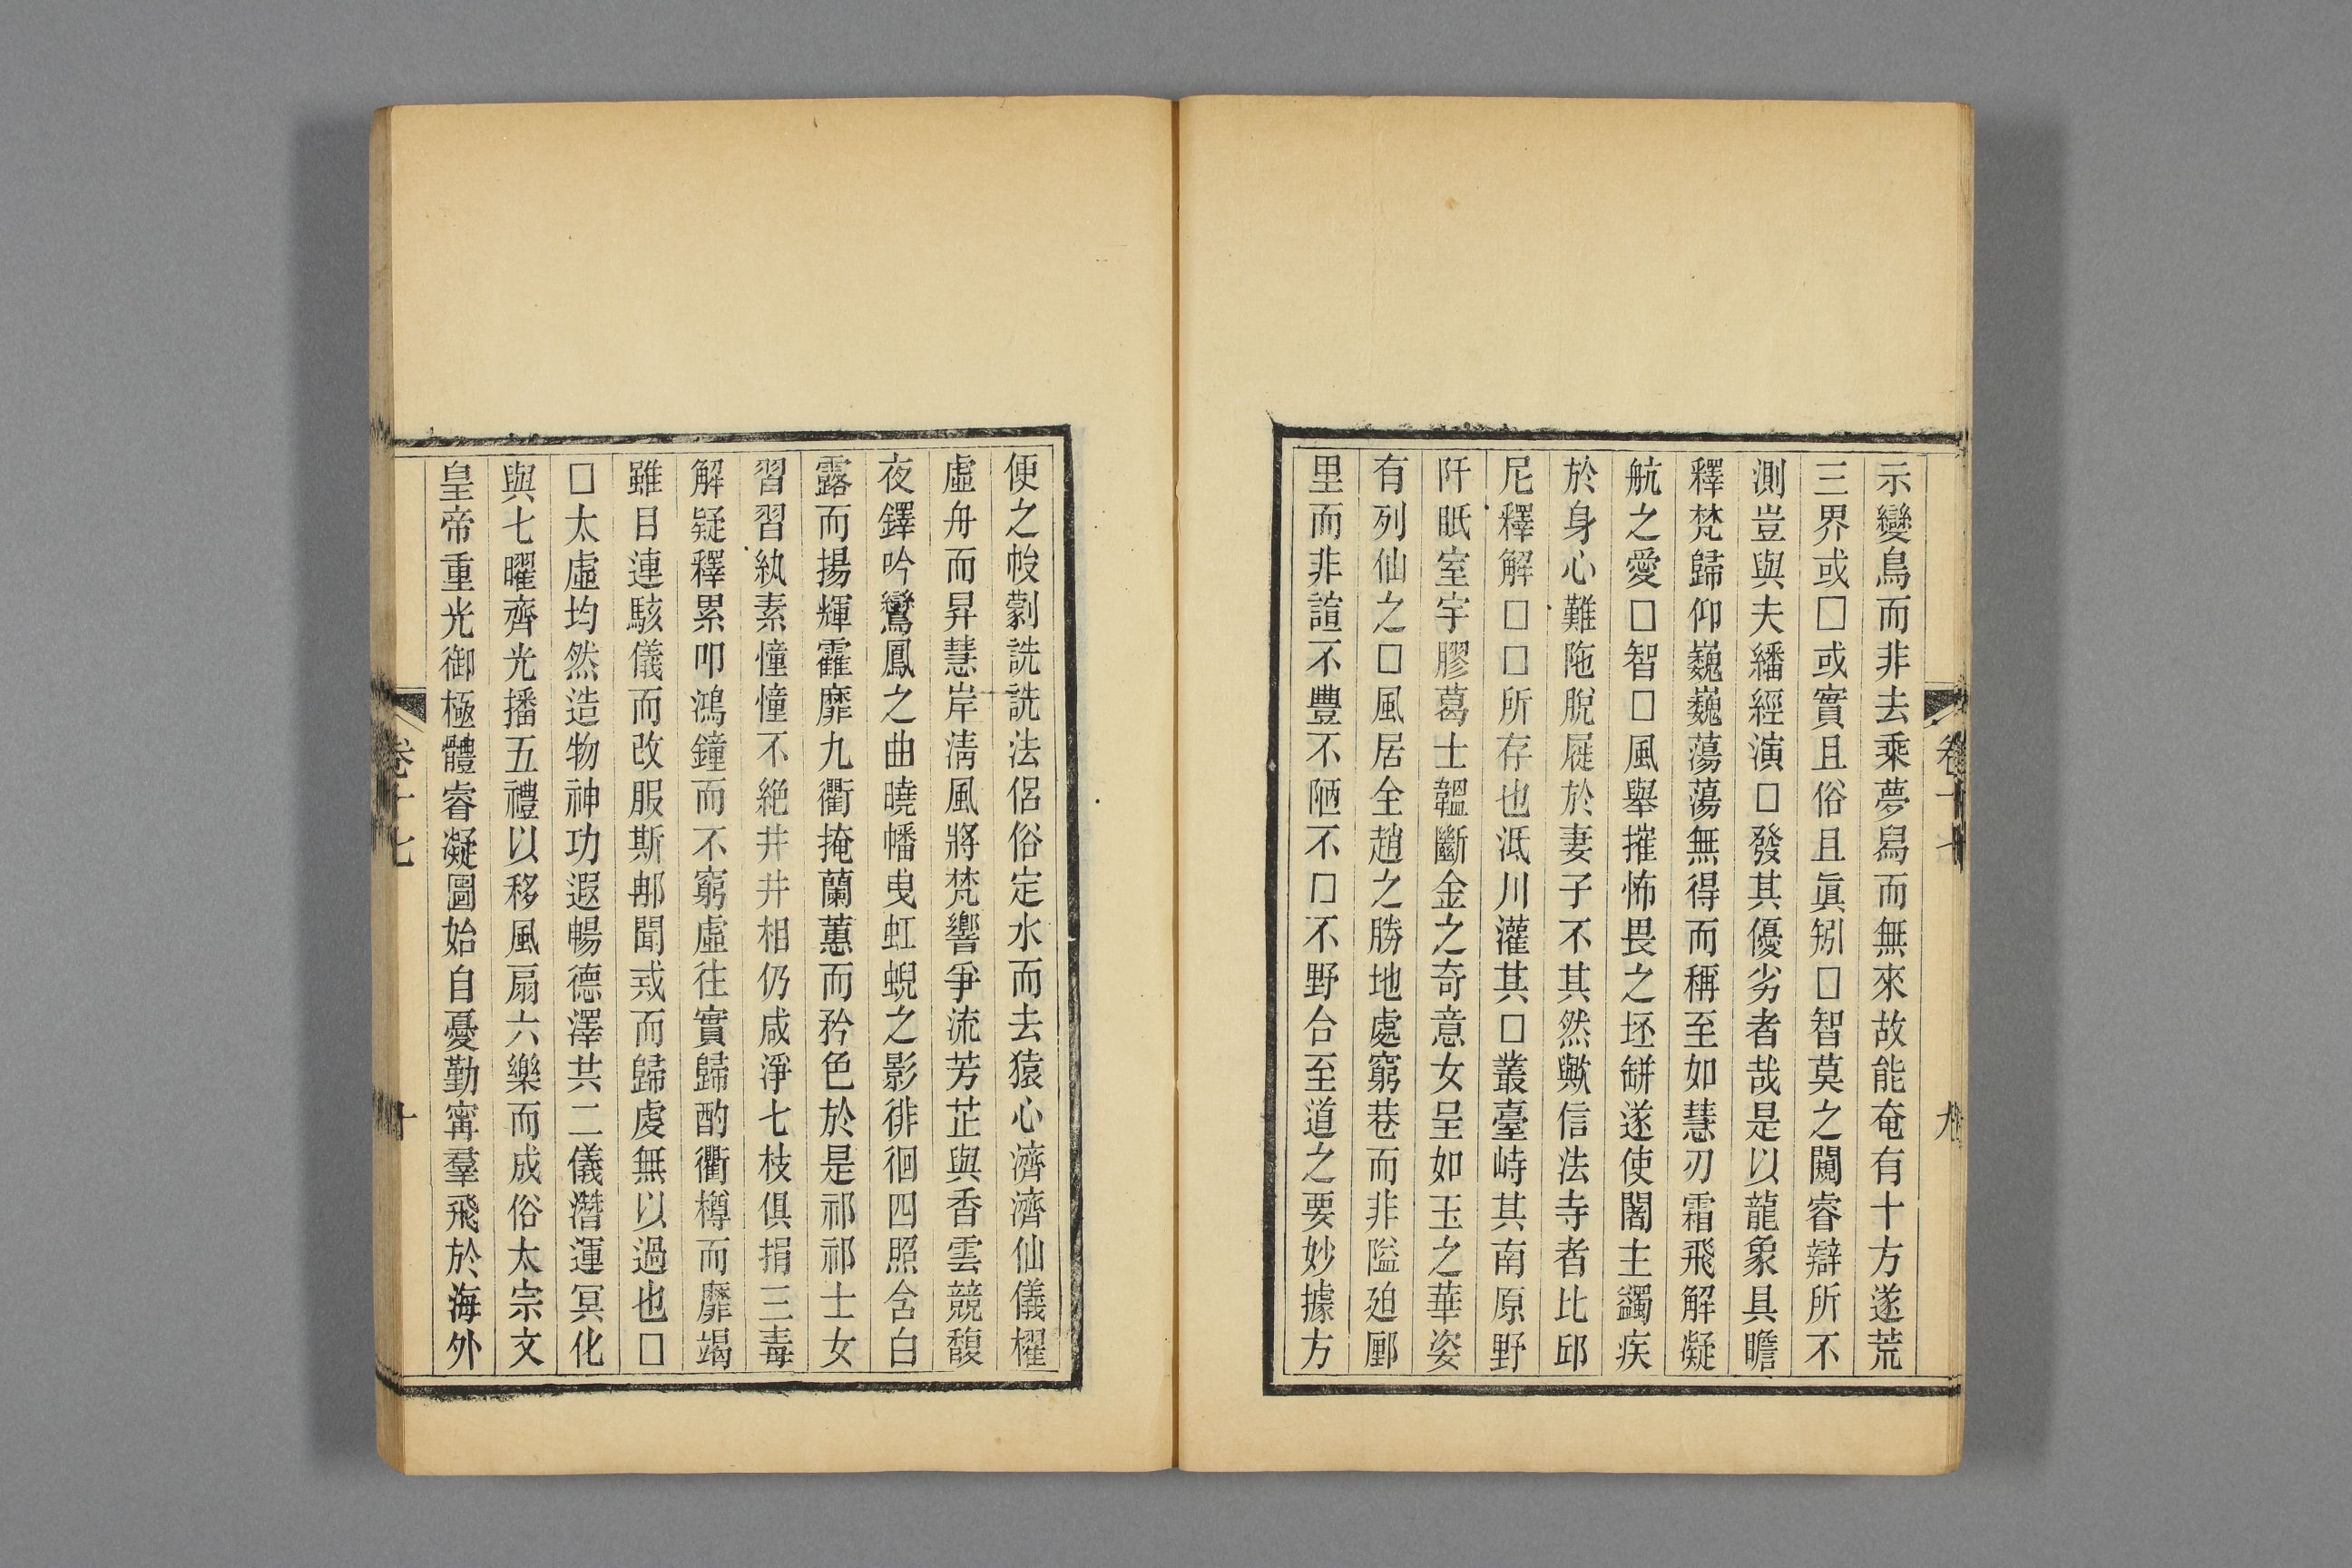 示變鳥而非去乘夢舄而無來故能奄有十方遂荒
三界或□或實且俗且眞矧□智莫之闚睿辯所不
測豈與夫繙經演□發其優劣者哉是以龍象具瞻
釋梵歸仰巍巍蕩蕩無得而稱至如慧刃霜飛解凝
航之愛□智□風舉摧怖畏之坯缾遂使闍主蠲疾
於身心難陁脫屣於妻子不其然歟信法寺者比邱
尼釋解□□所存也泜川灌其□叢臺峙其南原野
阡眠室宇膠葛士韞斷金之奇意女呈如玉之華姿
有列仙之□風居全趙之勝地處窮巷而非隘廹郾
里而非諠不豐不陋不□不野合至道之要妙據方
卷十七
九
便之㡊劉詵詵法侶俗定水而去猿心濟濟仙儀櫂
虛舟而昇慧岸淸風將梵響爭流芳芷與香雲競馥
夜鐸吟鸞鳳之曲曉幡曵虹蜺之影徘徊四照含白
露而揚輝霍靡九衢掩蘭蕙而矜色於是祁祁士女
習習紈素憧憧不絕井井相仍咸淨七枝俱捐三毒
解疑釋累叩鴻鐘而不窮虛往實歸酌衢樽而靡竭
雖目連駭儀而改服斯郍聞戒而歸虔無以過也□
□太虛均然造物神功遐暢德澤共二儀潛運冥化
與七曜齊光播五禮以移風扇六樂而成俗太宗文
皇帝重光御極體睿凝圖始自憂勤寗羣飛於海外
卷十七
十